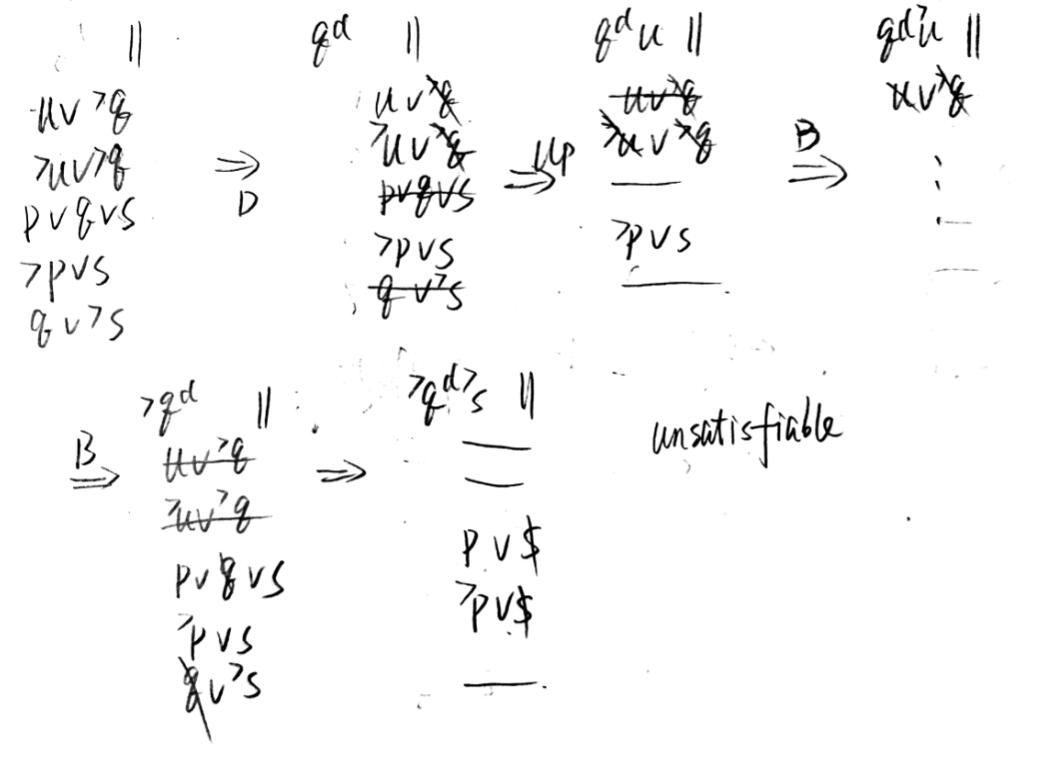 ||
u∨¬q
¬u∨¬q
p∨q∨s
¬p∨s
q∨¬s
⇒
D
qᵈ ||
u∨¬q
¬u∨¬q
p∨q∨s
¬p∨s
q∨¬s
⇒ UP
qᵈ u ||
u∨¬q
¬u∨¬q
¬p∨s
B
⇒
qᵈ ¬u ||
u∨¬q
B
⇒
¬qᵈ ||
u∨¬q
¬u∨¬q
p∨q∨s
¬p∨s
q∨¬s
⇒
¬qᵈ ¬s ||
p∨s
¬p∨s
unsatisfiable